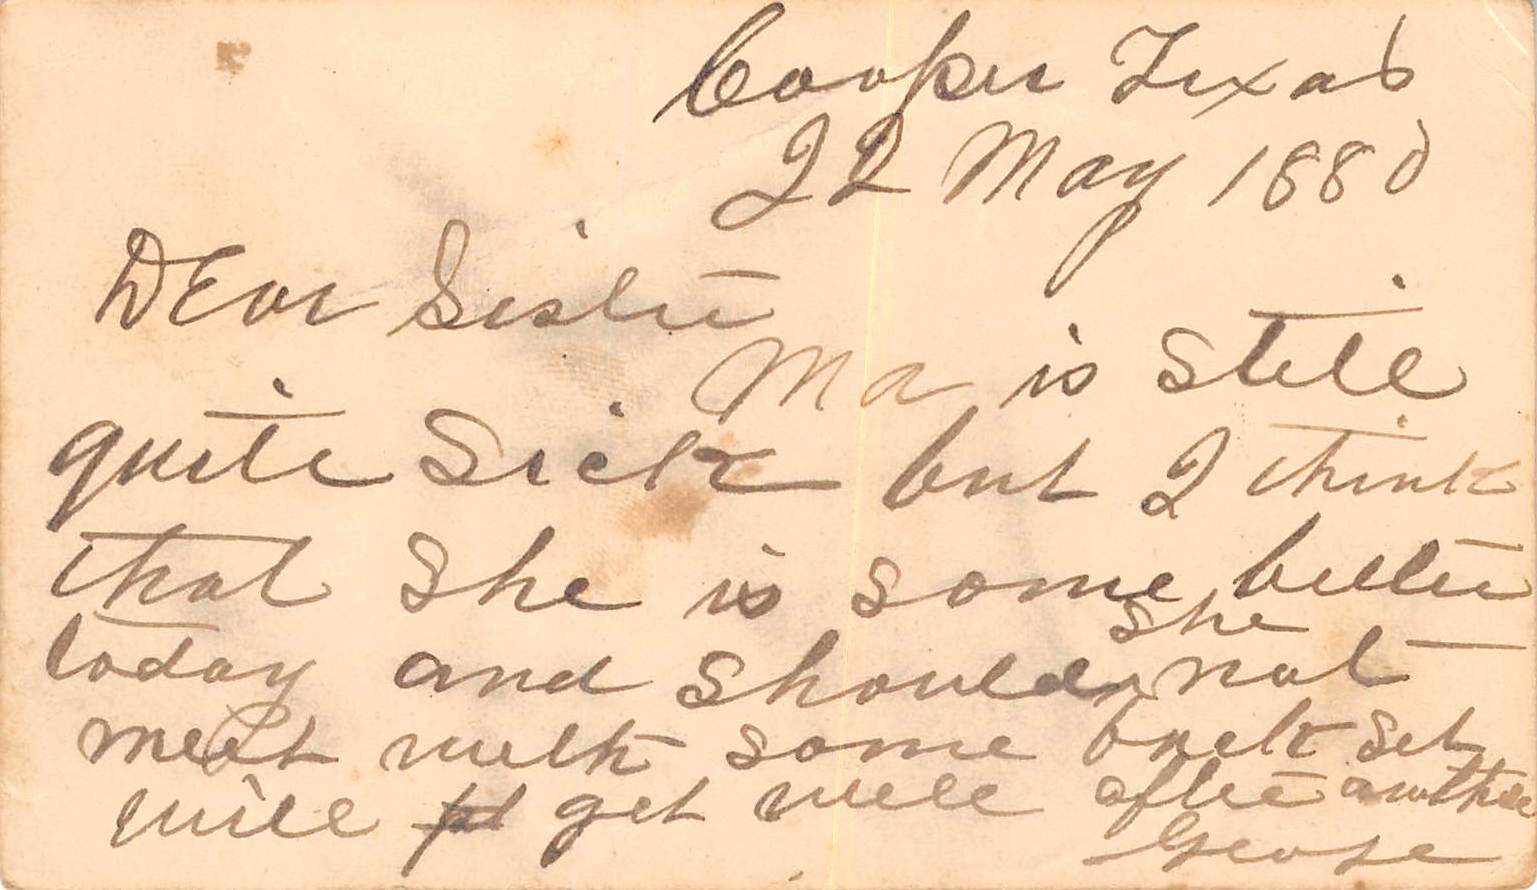 Cooper Texas
22 May 1880
DEar Sister
Ma is still
quite Sick but I think
that She is some better
today and should she not
meet with some back set
will get well after another
George